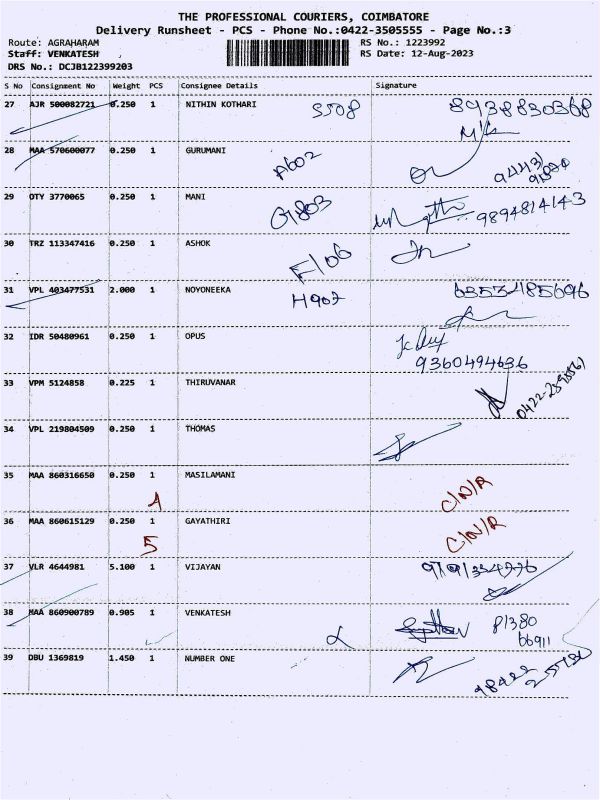 THE PROFESSIONAL COURIERS, COIMBATORE
Delivery Runsheet - PCS - Phone No.:0422-3505555 - Page No.:3
Route: AGRAHARAM RS No.: 1223992
Staff: VENKATESH RS Date: 12-Aug-2023
DRS No.: DCJB122399203
S No Consignment No Weight PCS Consignee Details Signature
27 AJR 500082721 0.250 1 NITHIN KOTHARI S508 8938830368
28 MAA 570600077 0.250 1 GURUMANI A602
29 OTY 3770065 0.250 1 MANI G1803 9894814143
30 TRZ 113347416 0.250 1 ASHOK F106
31 VPL 403477531 2.000 1 NOYONEEKA H902 63534185696
32 IDR 50480961 0.250 1 OPUS
9360494636
33 VPM 5124858 0.225 1 THIRUVANAR
34 VPL 219804509 0.250 1 THOMAS
35 MAA 860316650 0.250 1 MASILAMANI C/N/R
36 MAA 860615129 0.250 1 GAYATHIRI C/N/R
5
37 VLR 4644981 5.100 1 VIJAYAN
38 MAA 860900789 0.905 1 VENKATESH 81380
66911
39 DBU 1369819 1.450 1 NUMBER ONE